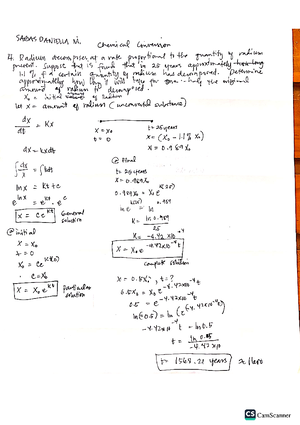 SABAS DANIELLA M.
Chemical Conversion
4. Radium decomposes at a rate proportional to the quantity of radium
present. Suppose that is found that in 25 years approximately
1.1 % of a certain quantity of radium has decomposed. Determine
approximately how long it will take for one-half the original
amount of radium to decomposed.
X₀ = initial of radium
let x = amount of radium (unconverted substance)
dx/dt = kx
dx = kxdt
∫dx/x = ∫kdt
ln x = kt + c
e^lnx = e^kt · e^c
x = ce^kt General solution
@ initial
x = x₀
t = 0
x₀ = ce^k(0)
c = x₀
x = x₀e^kt particular solution
x = x₀
t = 0
t = 25 years
x = (x₀ - 1.1% x₀)
x = 0.989 x₀
@ final
t = 25 years
x = 0.989x₀
0.989x₀ = x₀e^k(25)
ln e^k(25) = ln 0.989
k = ln 0.989/25
k = -4.42 x10⁻⁴
x = x₀e^-4.42x10⁻⁴t
complete solution
x = 0.5x₀, t = ?
0.5x₀ = x₀e^-4.42x10⁻⁴t
0.5 = e^-4.42x10⁻⁴t
ln(0.5) = ln(e^-4.42x10⁻⁴t)
-4.42x10⁻⁴t = ln 0.5
t = ln 0.5/-4.42x10⁻⁴
CS CamScanner